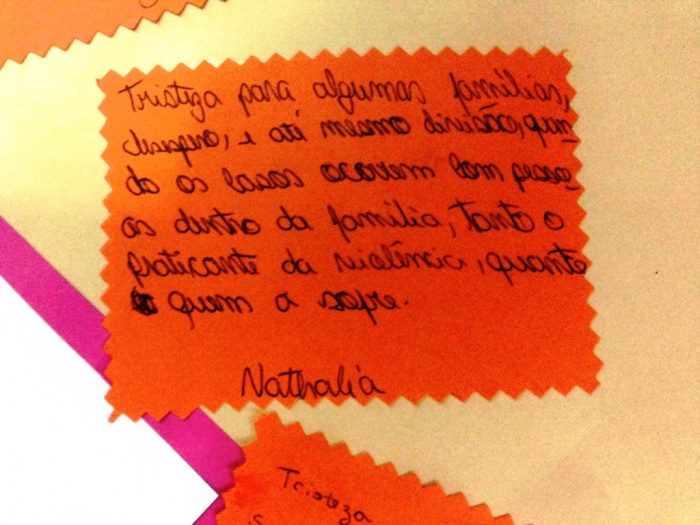 Tristeza para algumas famílias,
desespero, e até mesmo divisão, quan
do os casos ocorrem com pesso
as dentro da família, tanto o
praticante da violência, quanto
quem a sofre.
Nathalia
Tristeza